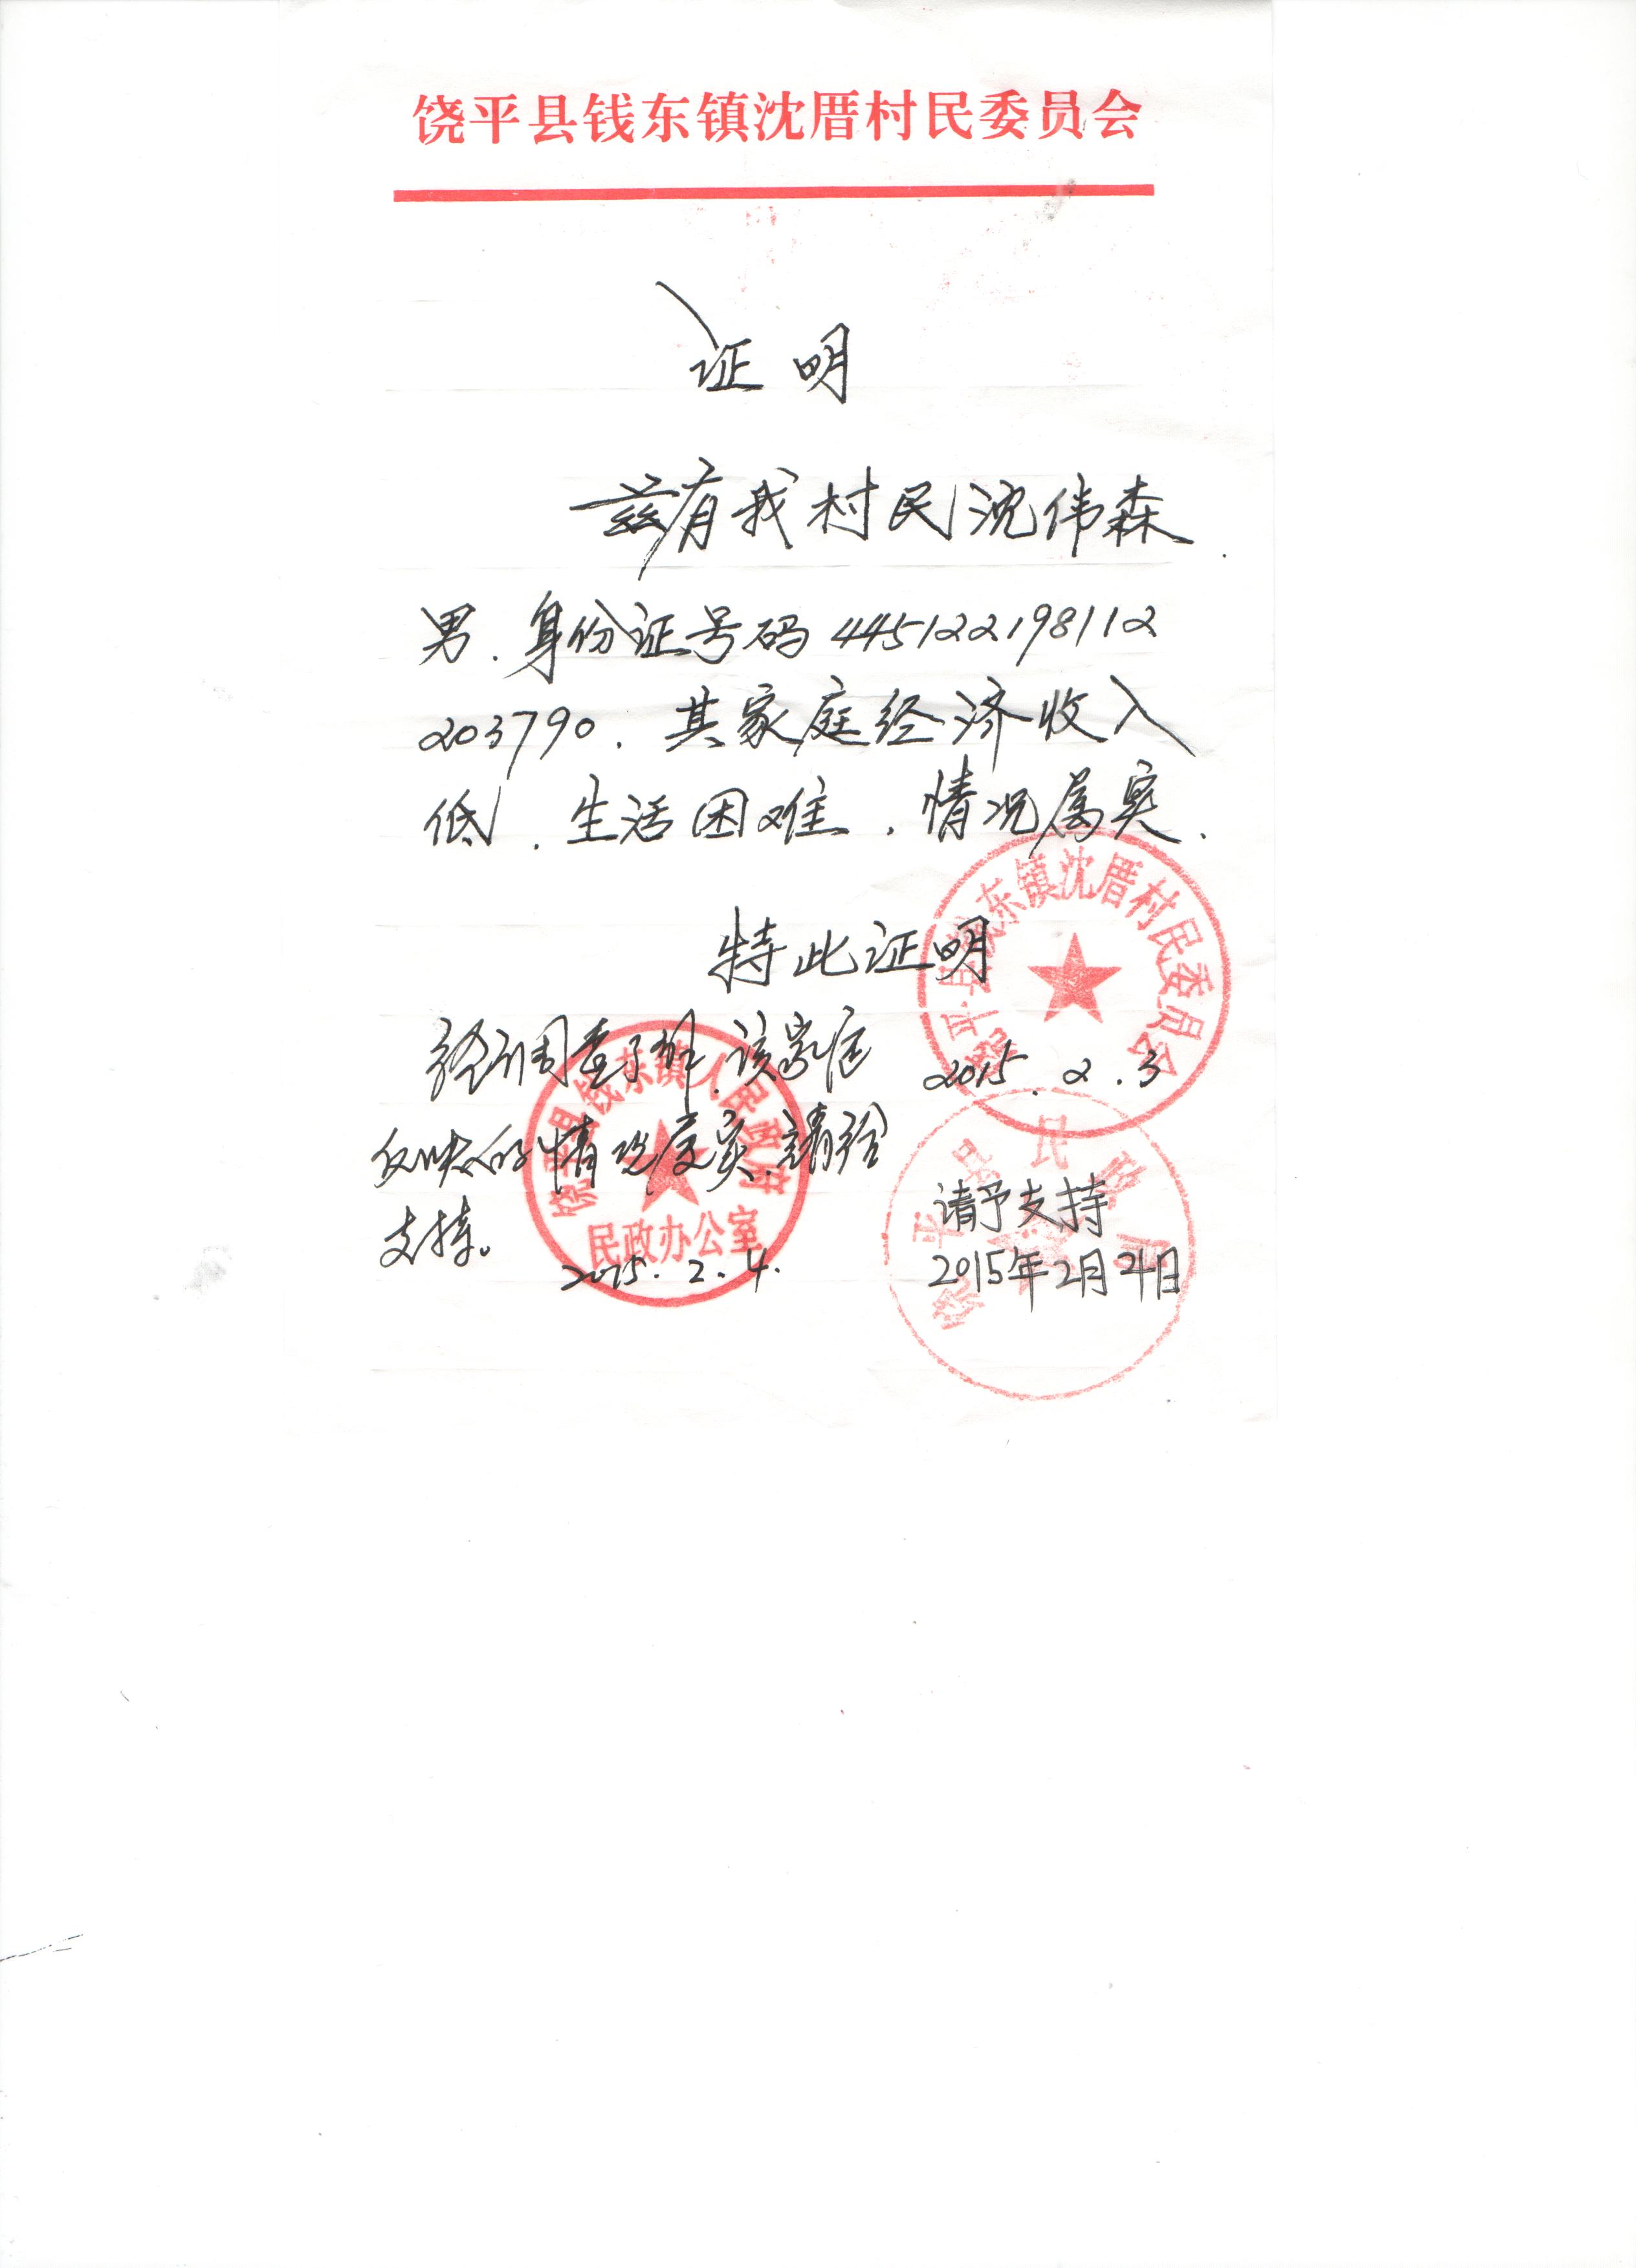 饶平县钱东镇沈厝村民委员会
证明
兹有我村民沈伟森.
男.身份证号码445122198112
203790.其家庭经济收入
低.生活困难.情况属实.
特此证明
饶平县钱东镇沈厝村民委员会
2015.2.3
经调查了解.该家庭
情况属实.请给
支持。
饶平县钱东镇人民政府
民政办公室
2015.2.4.
饶平县民政局
请予支持
2015年2月4日